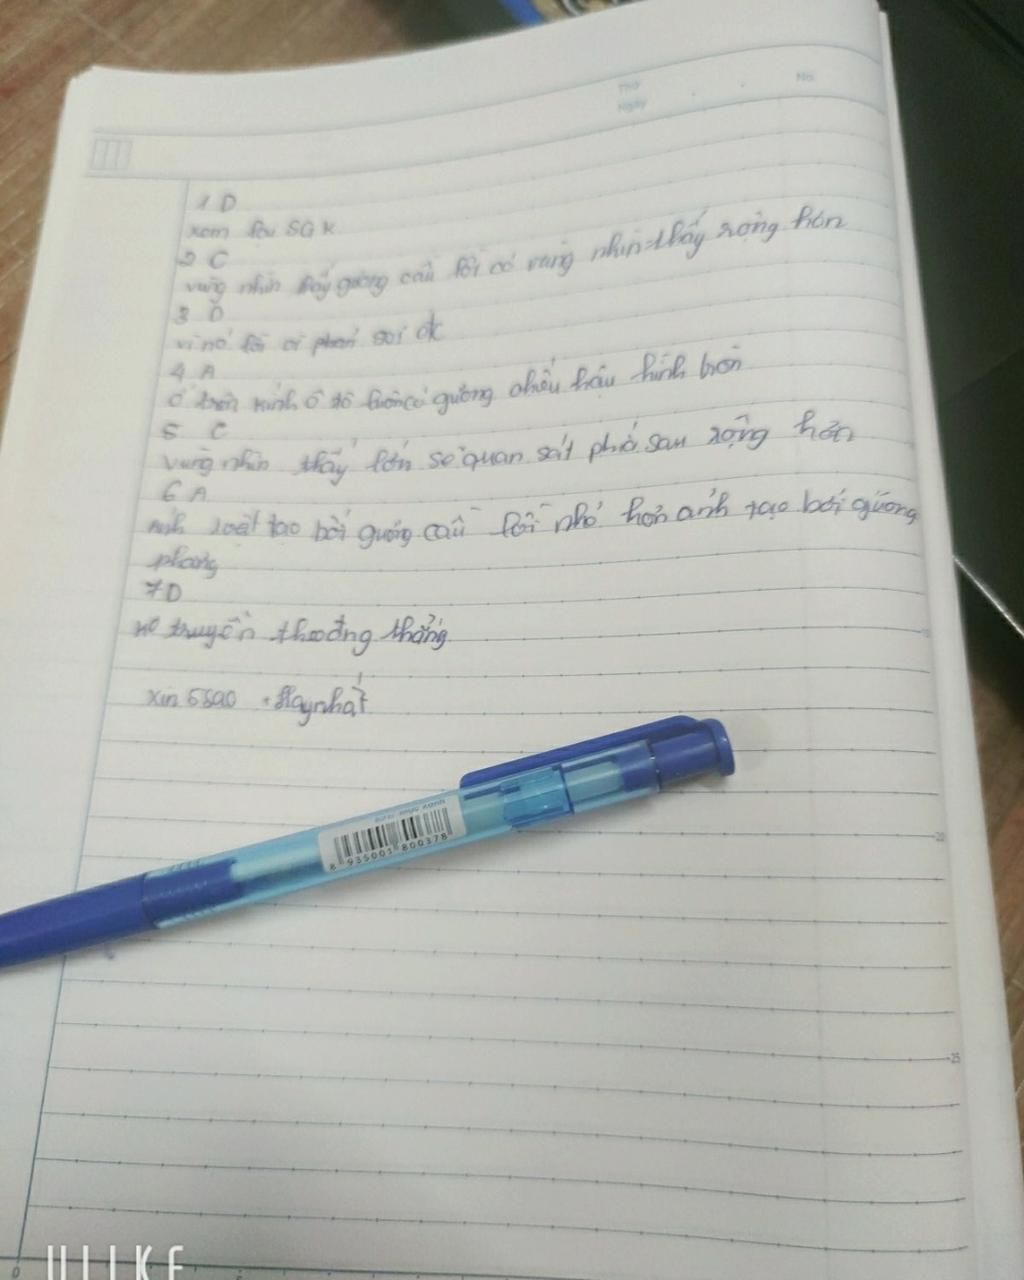 Thứ
Ngày
No.
1 D
xem lại SGK
2 C
vùng nhìn thấy gương cầu lồi có vùng nhìn thấy rộng hơn
3 D
vì nó lồi
4 A
ở trên kính ô tô luôn có gương chiếu hậu hình tròn
5 C
vùng nhìn thấy lớn sẽ quan sát phía sau rộng hơn
6 A
ảnh tạo bởi gương cầu lồi nhỏ hơn ảnh tạo bởi gương
phẳng
7 D
truyền thẳng
xin 5 sao hay nhất
8 935001 800378
20
25
ULIKE